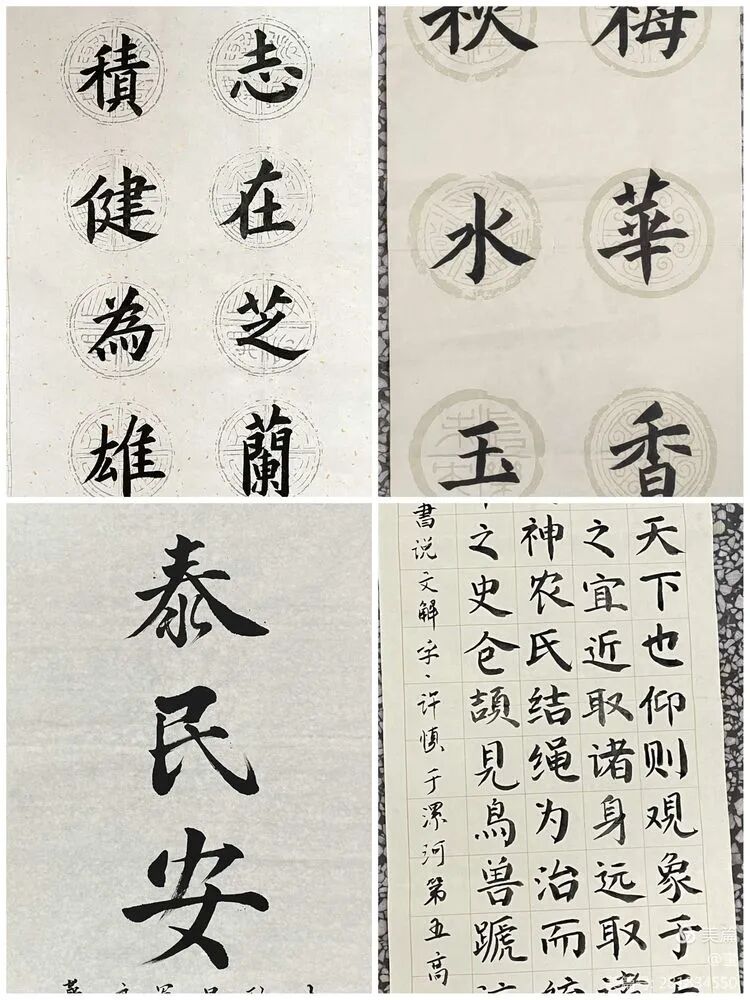 志在芝蘭
積健為雄
梅華香
秋水玉
泰民安
天下也仰则观象于
之宜近取诸身远取诸
神农氏结绳为治而统
之史仓颉见鸟兽蹏
書说文解字、许慎于漯河第五高
美篇